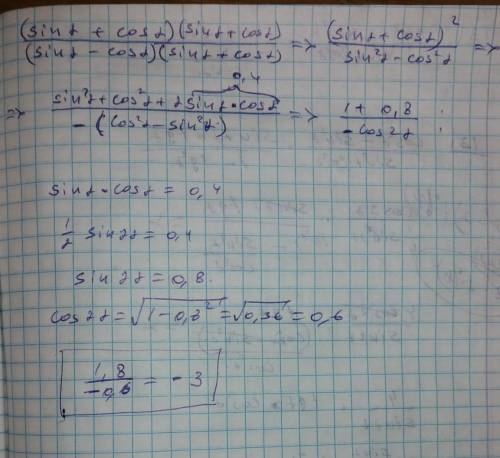 (sin α + cos α)(sin α + cos α) / (sin α - cos α)(sin α + cos α) => (sin α + cos α)² / sin²α - cos²α =>
0,4
=> sin²α + cos²α + 2 sin α · cos α / -(cos²α - sin²α) => 1 + 0,8 / -cos 2α ;
sin α · cos α = 0,4
1/2 sin 2α = 0,4
sin 2α = 0,8.
cos 2α = √(1 - 0,8²) = √0,36 = 0,6
1,8 / -0,6 = - 3